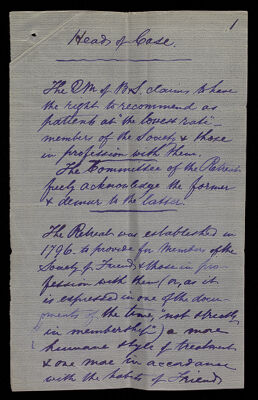 1
Heads of Case.
The QM of B.S. claims to have
the right to recommend as
patients at "the lowest rate"
members of the Society & those
in profession with them.
The Committee of the Retreat
freely acknowledge the former
& demur to the latter.
The Retreat was established in
1796 to provide for Members of the
Society of Friends & those in pro-
fession with them (or, as it
is expressed in one of the docu-
ments of the time, "not strictly
in membership") a more
humane style of treatment
& one more in accordance
with the habits of Friends